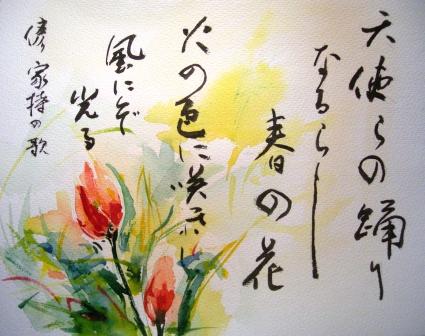 天使らの踊り
なるらし
春の花
火の色に咲き
風にぞ
光る
家持の歌